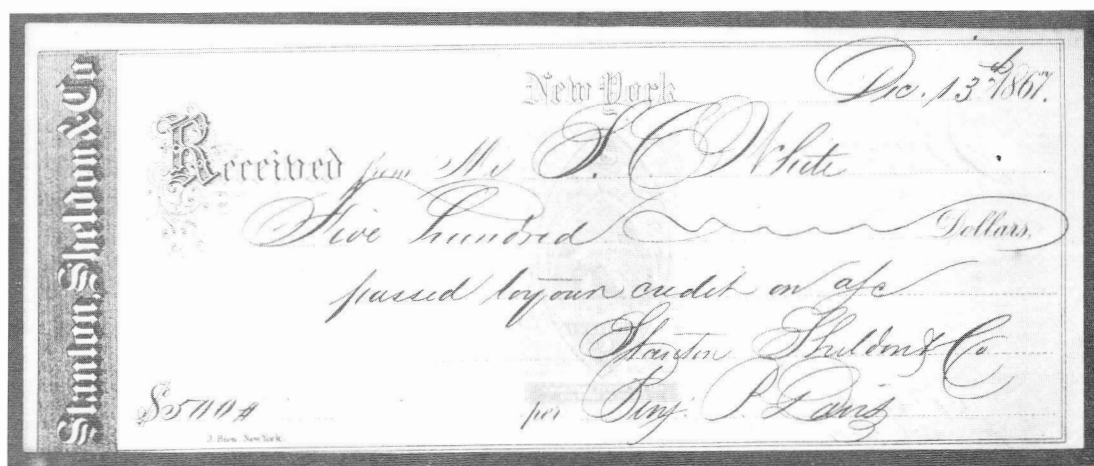 Stanton, Sheldon & Co
New York Dec. 13th 1867.
Received from Mr S. C. White
Five hundred Dollars.
passed to your credit on a/c
Stanton Sheldon & Co
$500# per Benj. P. Davis
New York